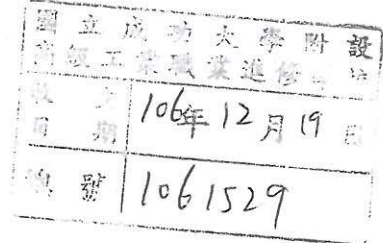 國立成功大學附設
高級工業職業進修
收文日期 106年12月19日
號 1061529